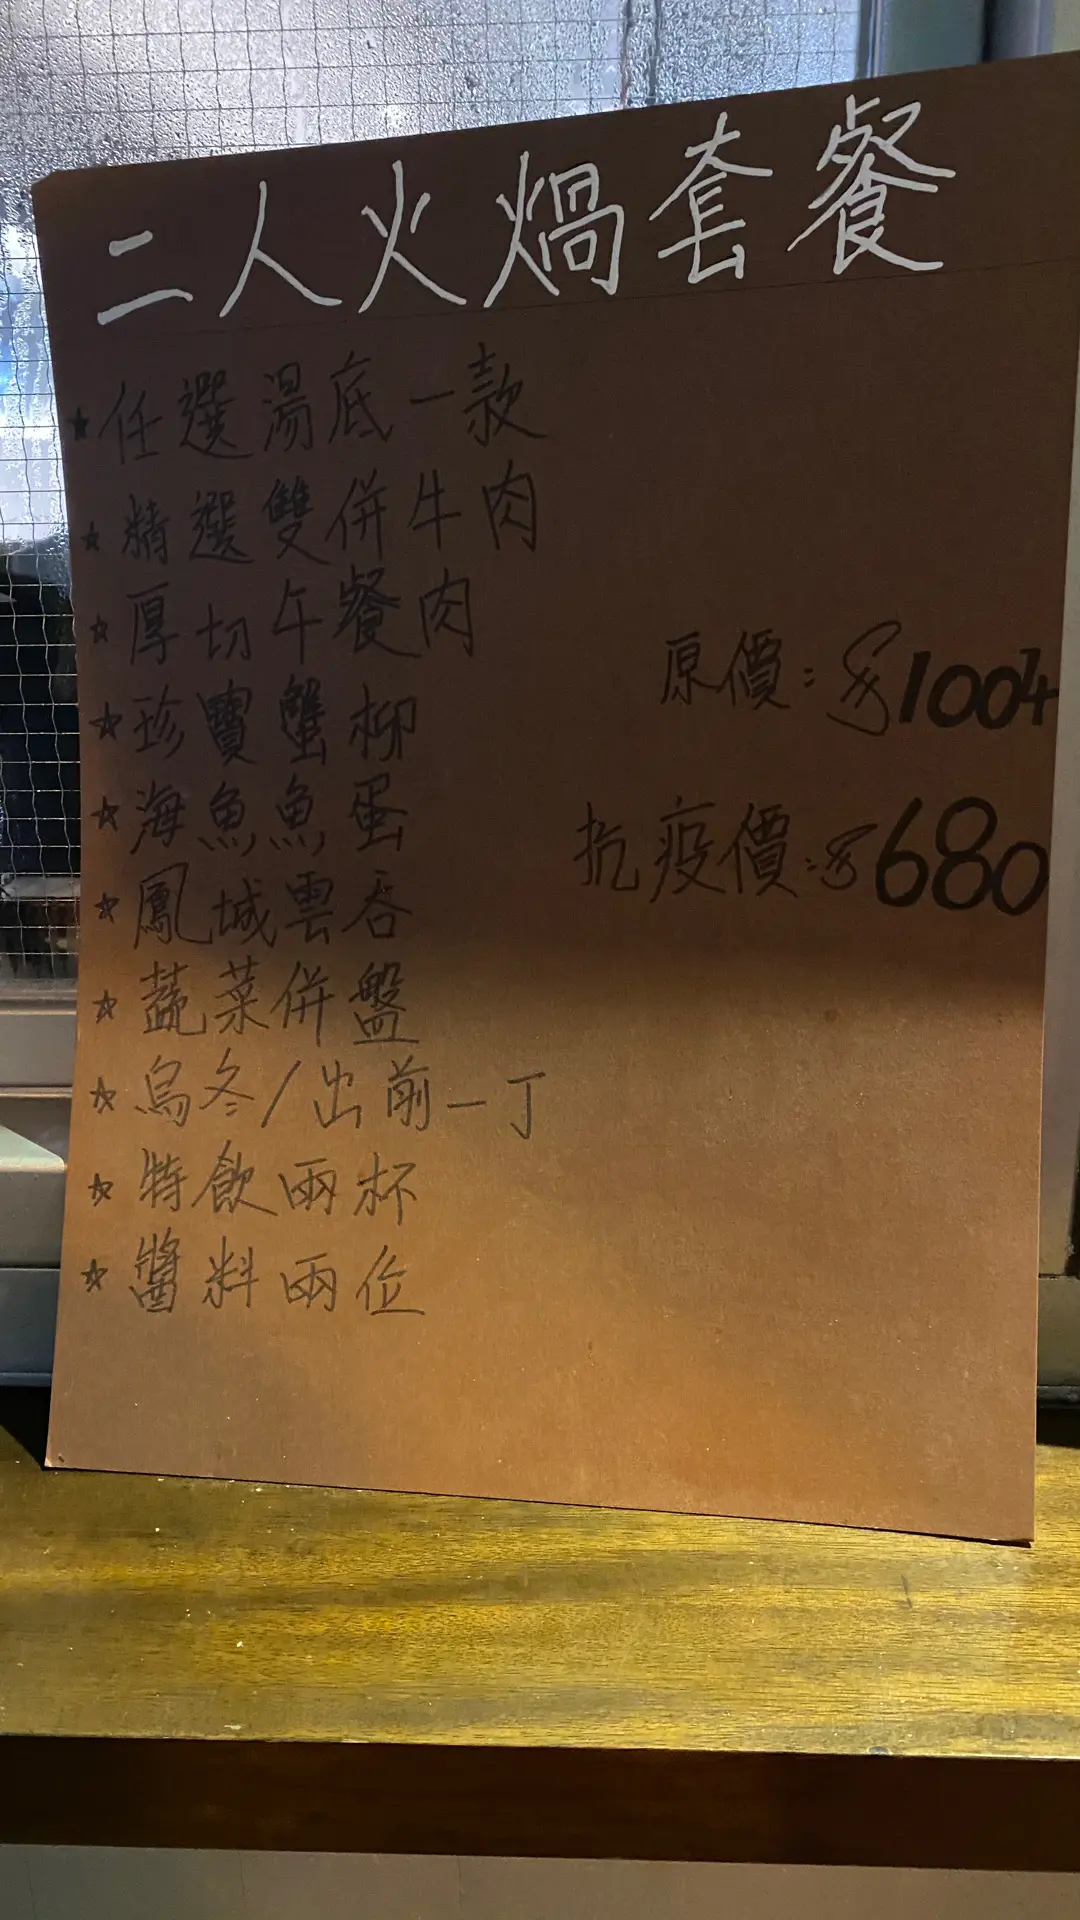 二人火煱套餐
★任選湯底一款
★精選雙併牛肉
★厚切午餐肉
★珍寶蟹柳
★海魚魚蛋
★鳳城雲吞
★蔬菜併盤
★烏冬/出前一丁
★特飲兩杯
★醬料兩位
原價:$1004
抗疫價:$680